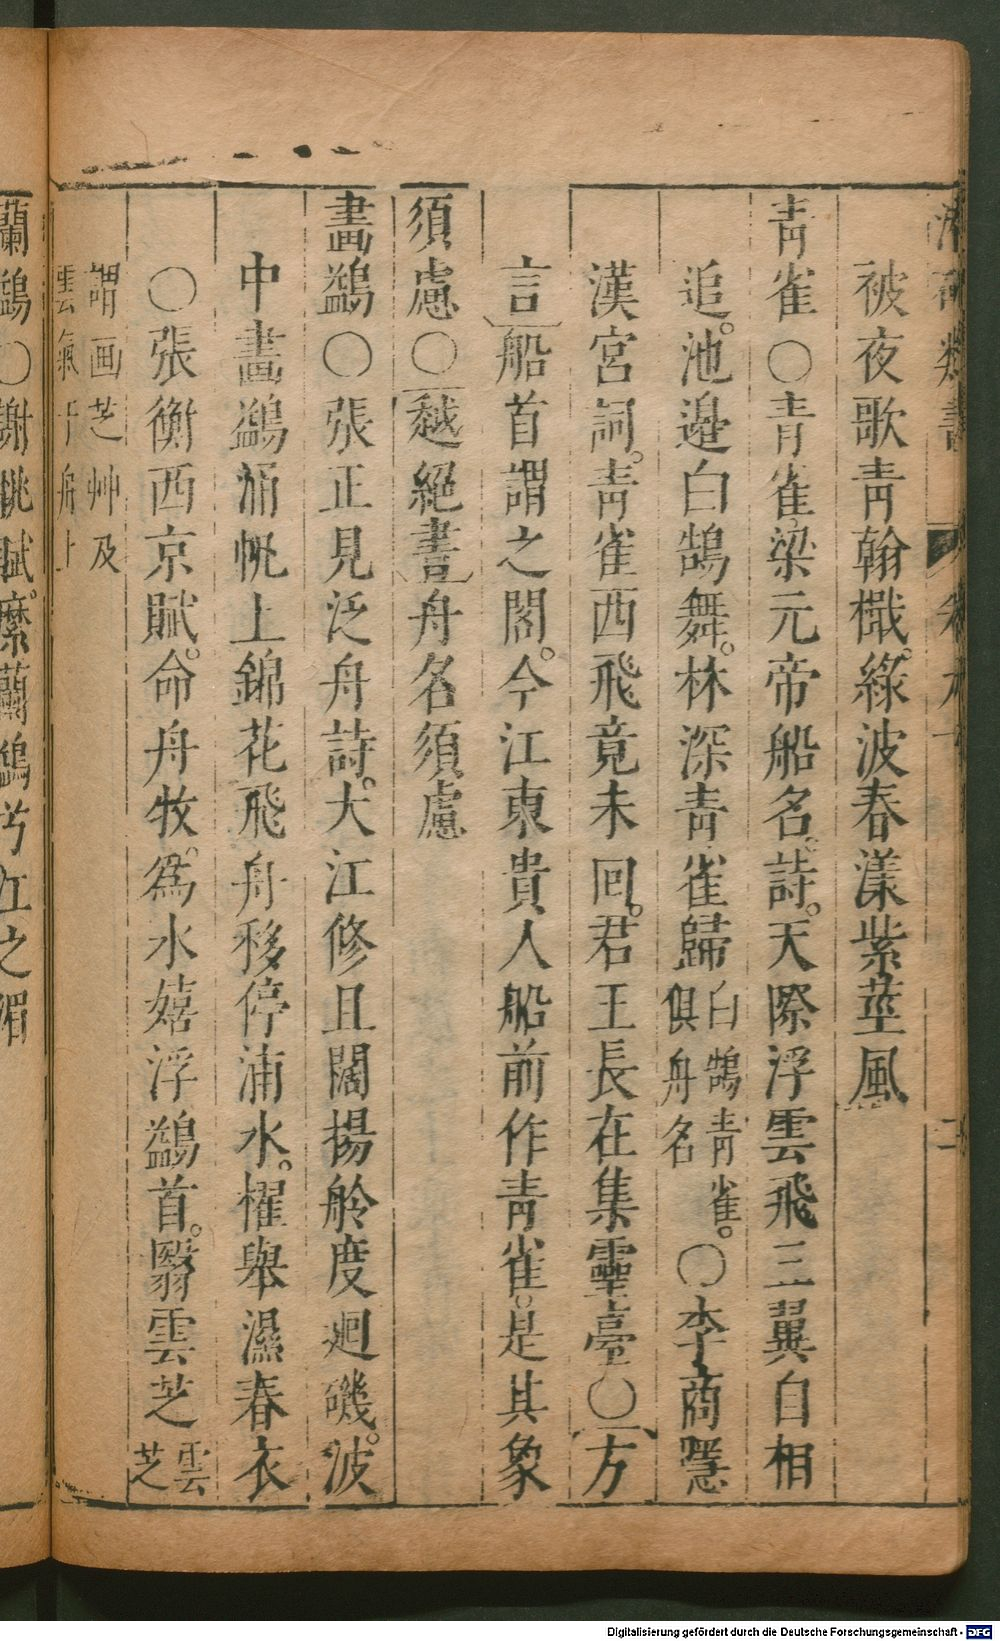 被夜歌青翰檝。綠波春漾紫莖風
青雀〇青雀梁元帝船名。詩。天際浮雲飛三翼自相
追。池邉白鵠舞。林深青雀歸白鵠青雀。俱舟名〇李商隱
漢宮詞。青雀西飛竟未回。君王長在集靈臺〇方
言船首謂之閤。今江東貴人船前作青雀。是其象
須慮〇越絕書舟名須慮
畫鷁〇張正見泛舟詩。大江修且闊揚舲度迴磯。波
中畫鷁涌帆上錦花飛舟移停浦水。櫂舉濕春衣
〇張衡西京賦。命舟牧。為水嬉浮鷁首。翳雲芝雲芝
謂画芝艸及
雲氣于船上
蘭鷁〇謝朓賦。縻蘭鷁兮江之湄
Digitalisierung gefördert durch die Deutsche Forschungsgemeinschaft - DFG